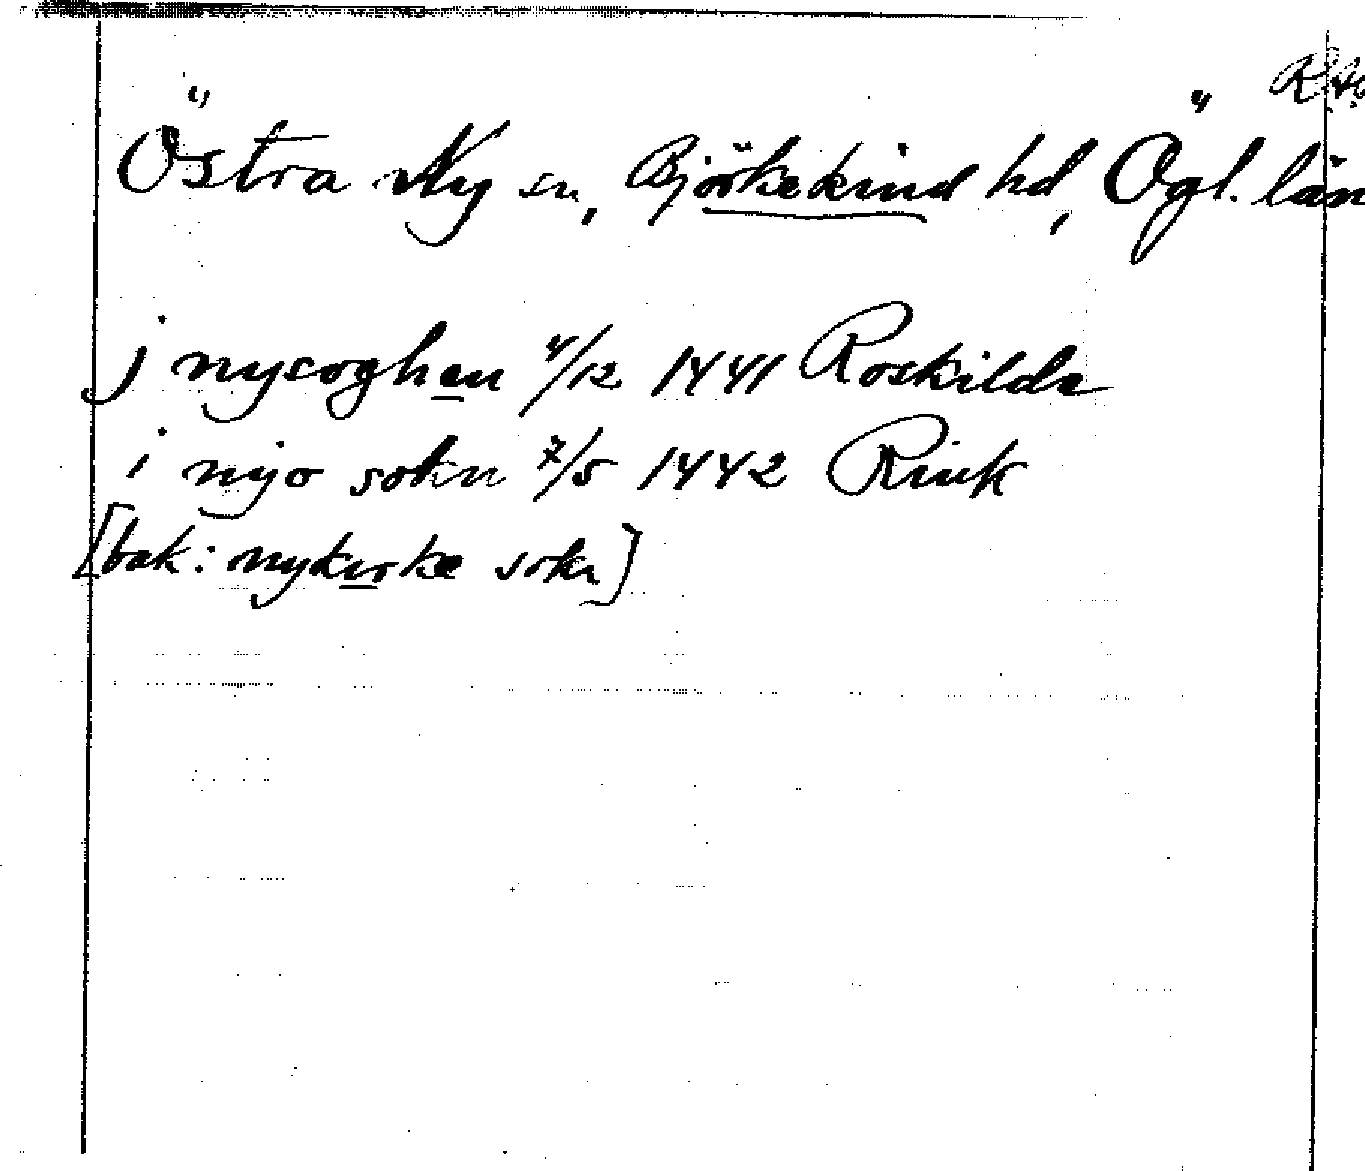 Östra Ny sn, Björkekind hd, Ögl. län
j nysoghen 4/12 1441 Roskilde
i nyo sokn 7/5 1442 Rink
[bak: nykirke sokn]